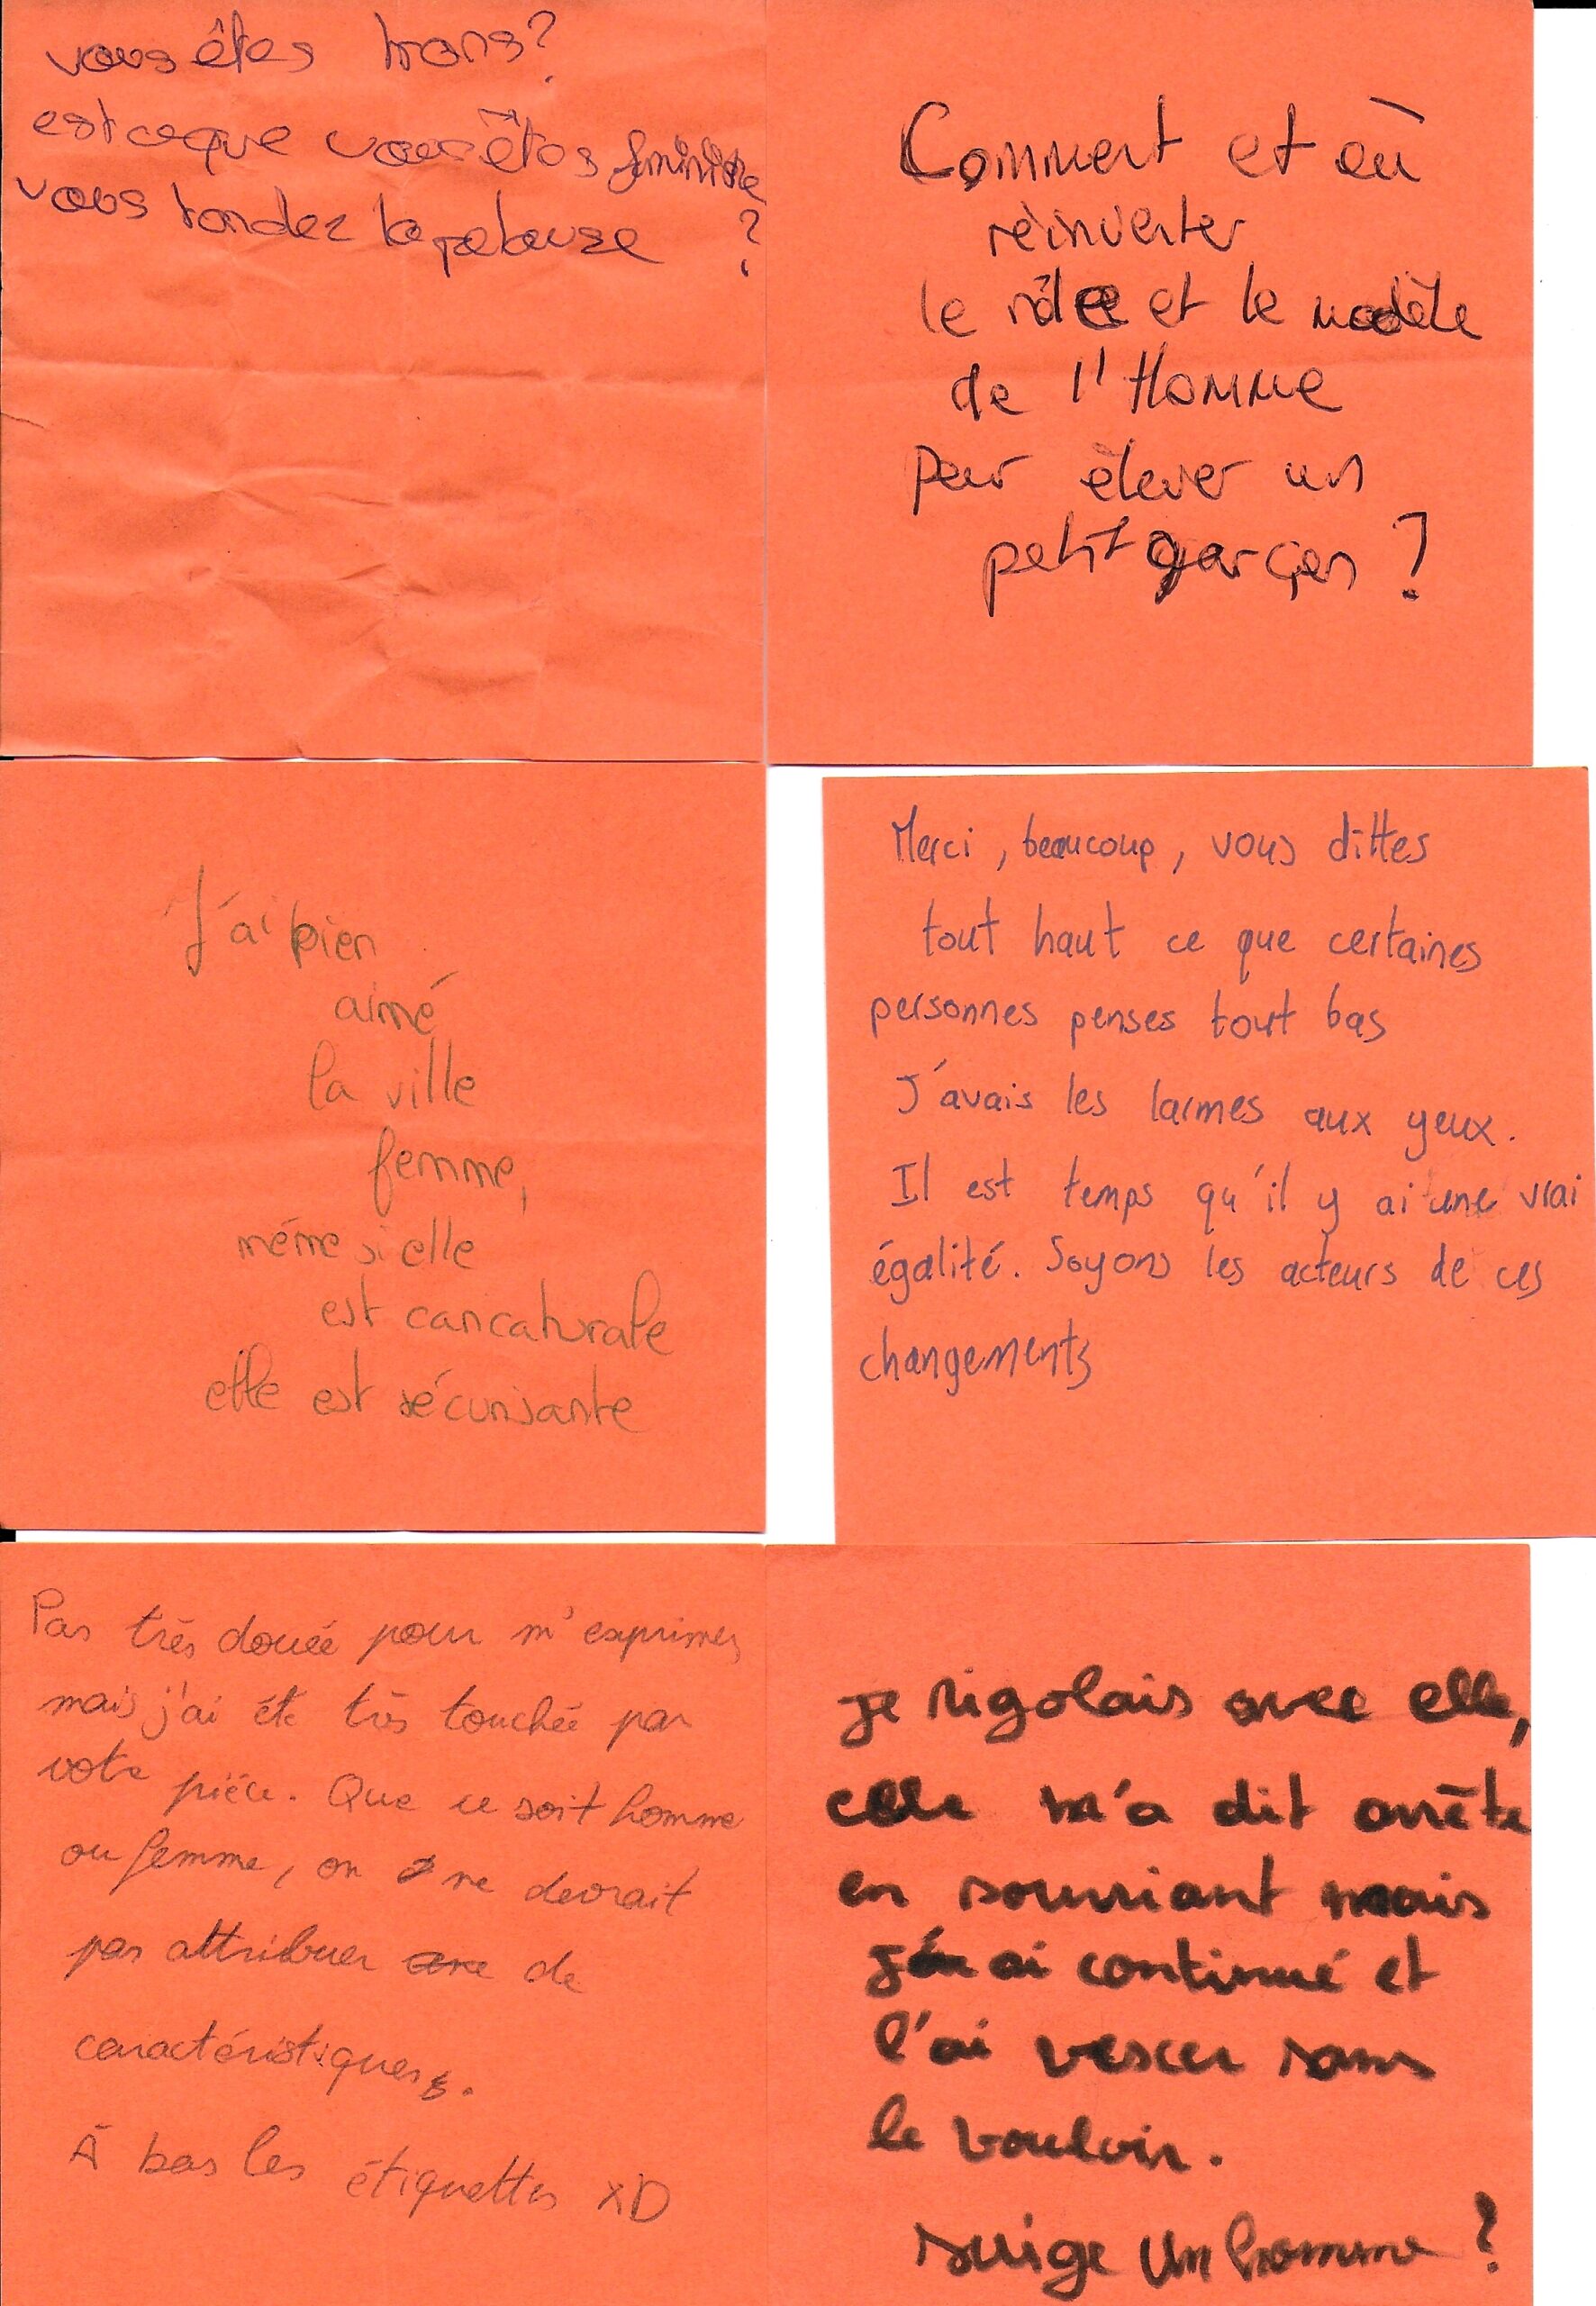 vous êtes trans?
est ceque vous êtes féministe
vous tondez la pelouse ?
Comment et où
réinventer
le rôle et le modèle
de l'Homme
pour élever un
petit garçon ?
J'ai bien
aimé
la ville
femme,
même si elle
est caricaturale
elle est sécurisante
Merci, beaucoup, vous dittes
tout haut ce que certaines
personnes penses tout bas
J'avais les larmes aux yeux.
Il est temps qu'il y ai une vrai
égalité. Soyons les acteurs de ces
changements
Pas très douée pour m'exprimer,
mais j'ai été très touchée par
votre pièce. Que ce soit homme
ou femme, on ne devrait
pas attribuer de
caractéristiques.
À bas les étiquettes XD
je rigolais avec elle,
elle m'a dit arrête
en souriant mais
j'ai continué et
l'ai vescer sans
le vouloir.
suige un homme ?